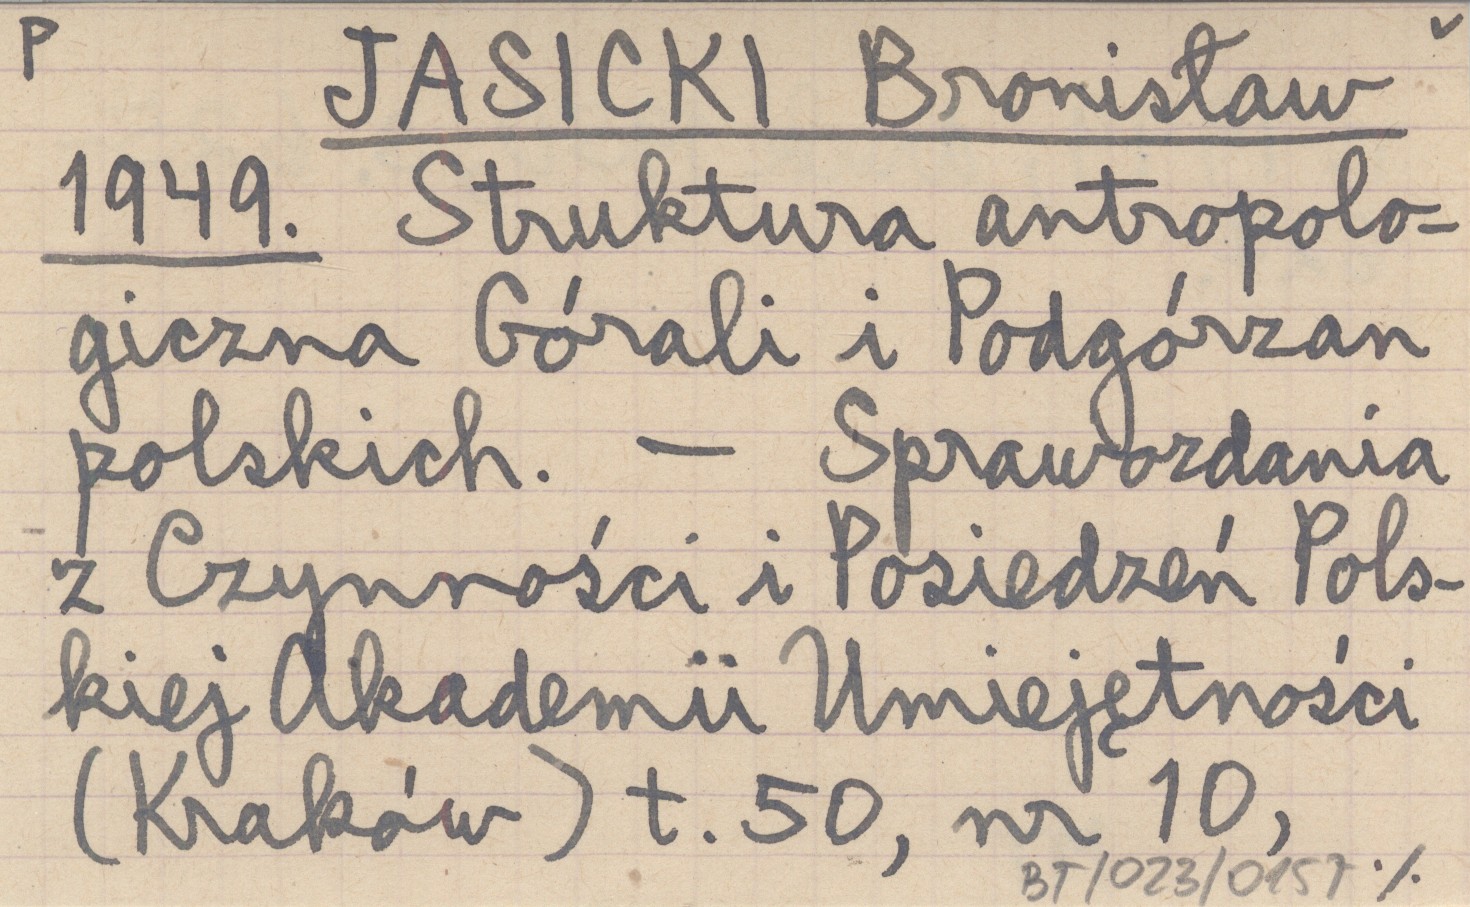 P JASICKI Bronisław ˇ
1949. Struktura antropolo=
giczna Górali i Podgórzan
polskich. — Sprawozdania
z Czynności i Posiedzeń Pols-
kiej Akademii Umiejętności
(Kraków) t. 50, nr 10,
BT/023/0157 ./.